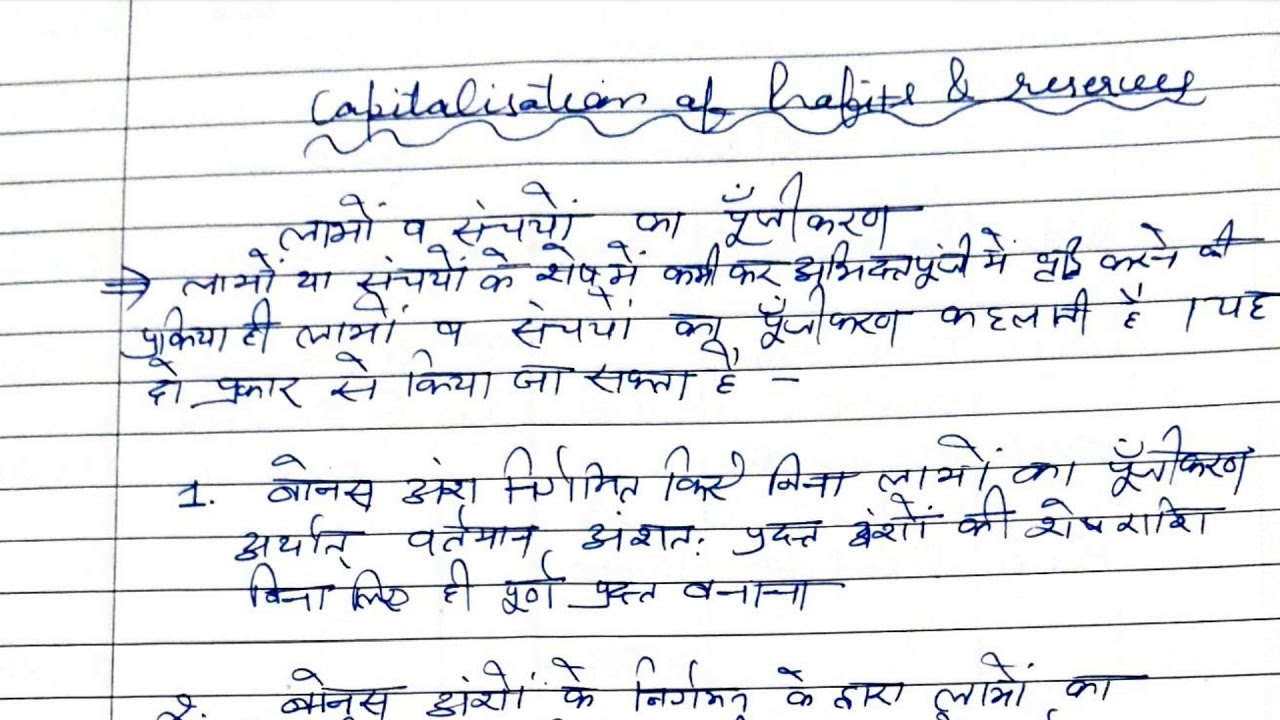 Capitalisation of Profits & reserves
लाभों व संचयों का पूँजीकरण
⇒ लाभों या संचयों के शेष में कमी कर अभिदत्त पूंजी में वृद्धि करने की
प्रकिया ही लाभों व संचयों का पूँजीकरण कहलाती है । यह
दो प्रकार से किया जा सकता है -
1. बोनस अंश निर्गमित किए बिना लाभों का पूँजीकरण
अर्थात् वर्तमान अंशत: प्रदत्त अंशों की शेष राशि
बिना लिए ही पूर्ण प्रदत्त बनाना
2. बोनस अंशों के निर्गमन के द्वारा लाभों का